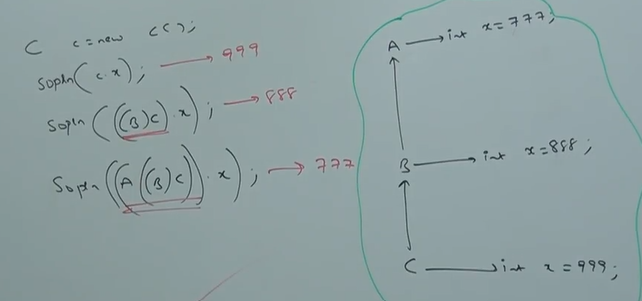 C c = new C();
Sopln(c.x); → 999
Sopln(((B)c).x); → 888
Sopln((A((B)c)).x); → 777
A → int x = 777;
B → int x = 888;
C → int x = 999;